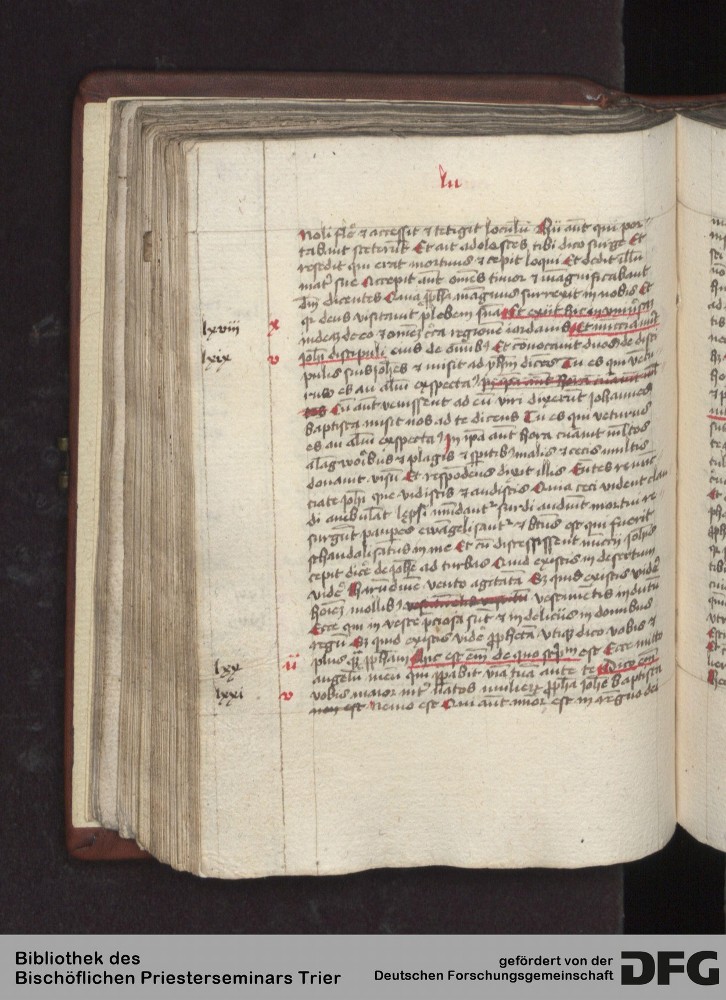 lu
noli flere ⁊ accessit ⁊ tetigit loculū Hii aūt qui por-
tabāt steterūt Et ait adolesces tibi dico surge Et
resedit qui erat mortuus ⁊ cepit loqui Et dedit illū
matri sue Accepit aūt omēs timor ⁊ magnificabant
dm̄ dicentes Quia ppha magnus surrexit in nobis Et
qr deus visitavit plebem suā Et exiit hic in univsā
lxviii x iudeā de eo ⁊ omē cca regionē
lxix v iohi discipuli eius de omibus Et convocavit duos de disci-
pulis suis iohes ⁊ misit ad ihm dices Tu es qui ven-
turus es an aliū expectam
Cū aūt venissent ad eū viri dixerūt iohannes
baptista misit nos ad te dicens Tu es qui venturus
es an aliū expectam In ipa aūt hora curavit multos
a lāgworibus ⁊ plagis ⁊ spiritibus malis ⁊ cecis multis
donavit visū Et respondens dixit illis Euntes renūt-
ciate iohi que vidistis ⁊ audistis Quia ceci vident clau-
di ambulāt lepsi mūdantr surdi audiūt mortui re-
surgūt pauperes ewāgelisantr ⁊ btus est qui fuerit
schandalisatus in me Et cū discessissent nuncii iohis
cepit dice de johe ad turbas Quid existis in desertum
vide Harūdinē vento agitatā Sz quid existis vide
hoiem mollibus vestimētis indutū
Ecce qui in veste pciosa sūt ⁊ in deliciis in domibus
regū Sz quid existis vide pphetā Utiqz dico vobis ⁊
lxx ii plus qz pphetā Hic est em de quo scptm est Ecce mitto
angelū meū qui ppabit viā tuā ante te Dico em
lxxi v vobis maior int natos mulierū ppha iohe baptista
nemo est Qui aūt minor est in regno dei
Bibliothek des
Bischöflichen Priesterseminars Trier
gefördert von der
Deutschen Forschungsgemeinschaft
DFG